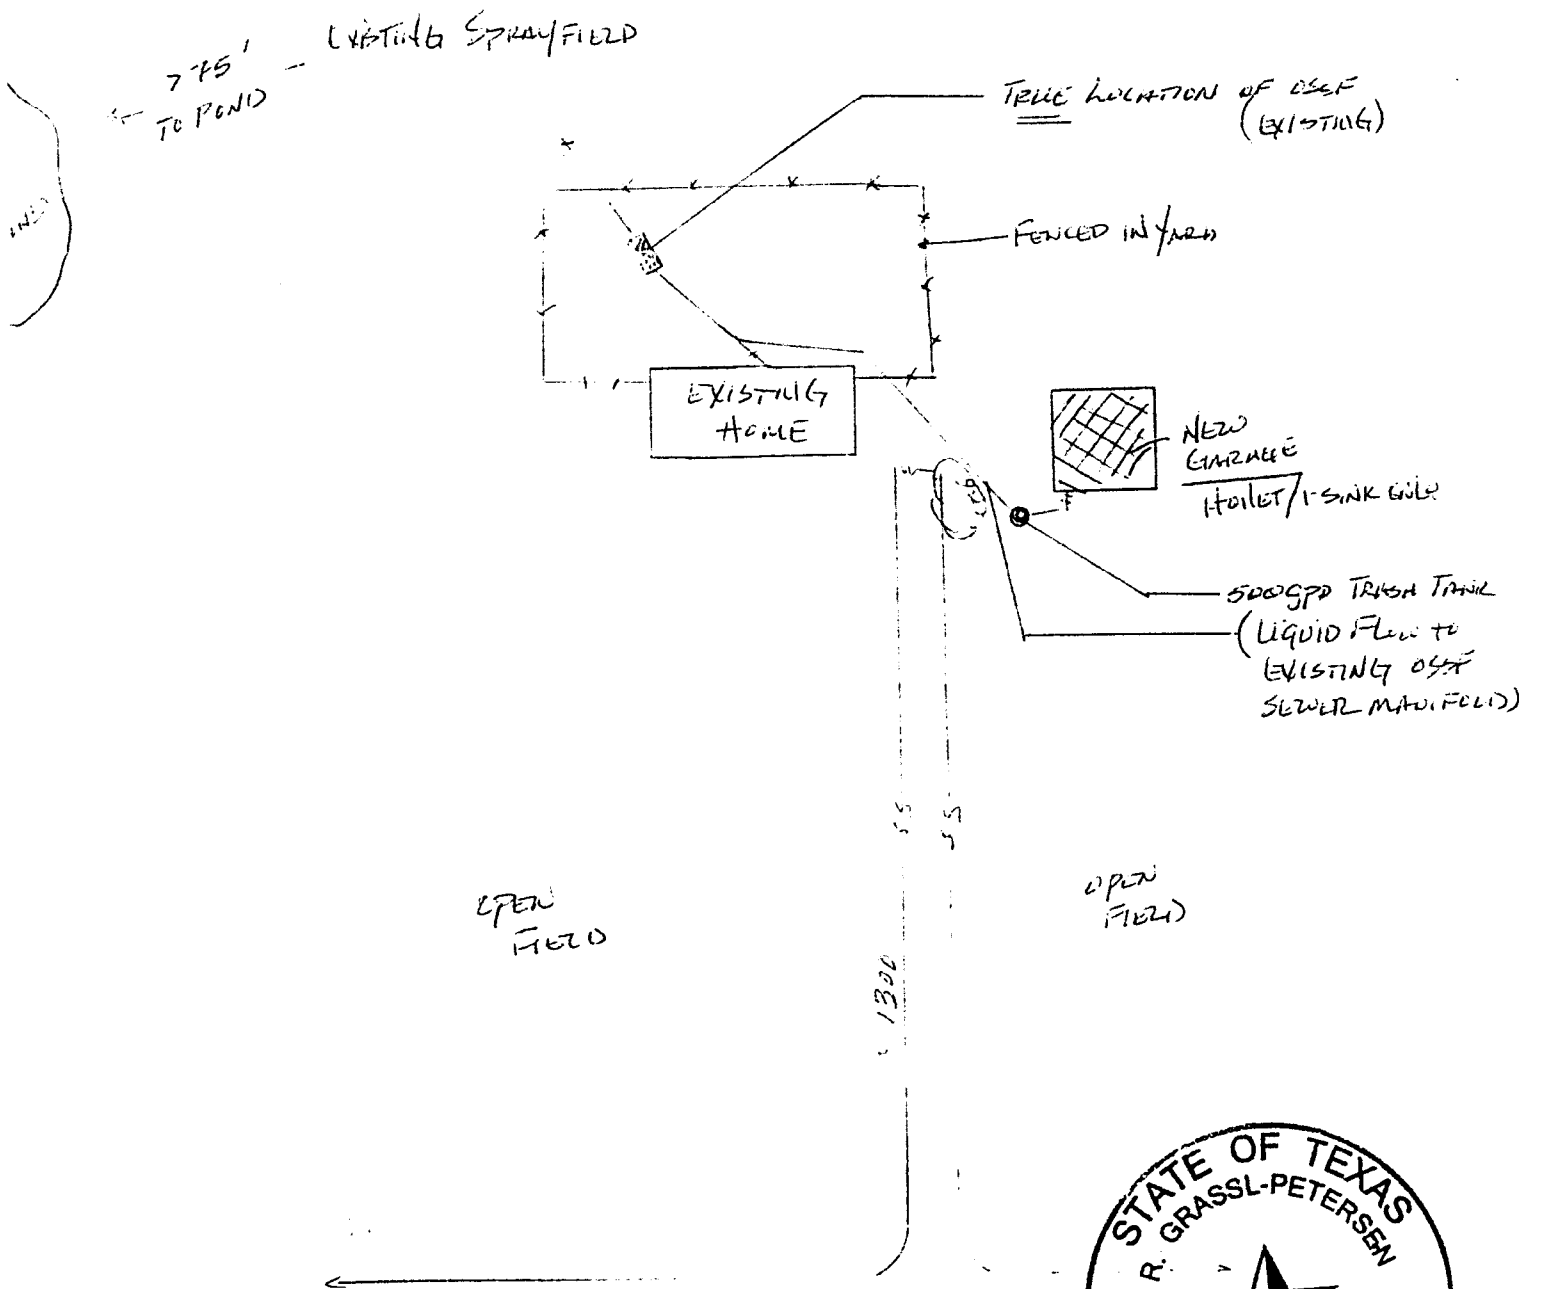 EXISTING SPRAYFIELD
>75'
TO POND
TRUE LOCATION OF OSSF
(EXISTING)
FENCED IN YARD
EXISTING
HOME
NEW
GARAGE
1-TOILET/1-SINK ONLY
500gpd TRASH TANK
(LIQUID FLOW TO
EXISTING OSSF
SEWER MANIFOLD)
OPEN
FIELD
OPEN
FIELD
1300
STATE OF TEXAS
R. GRASSL-PETERSEN